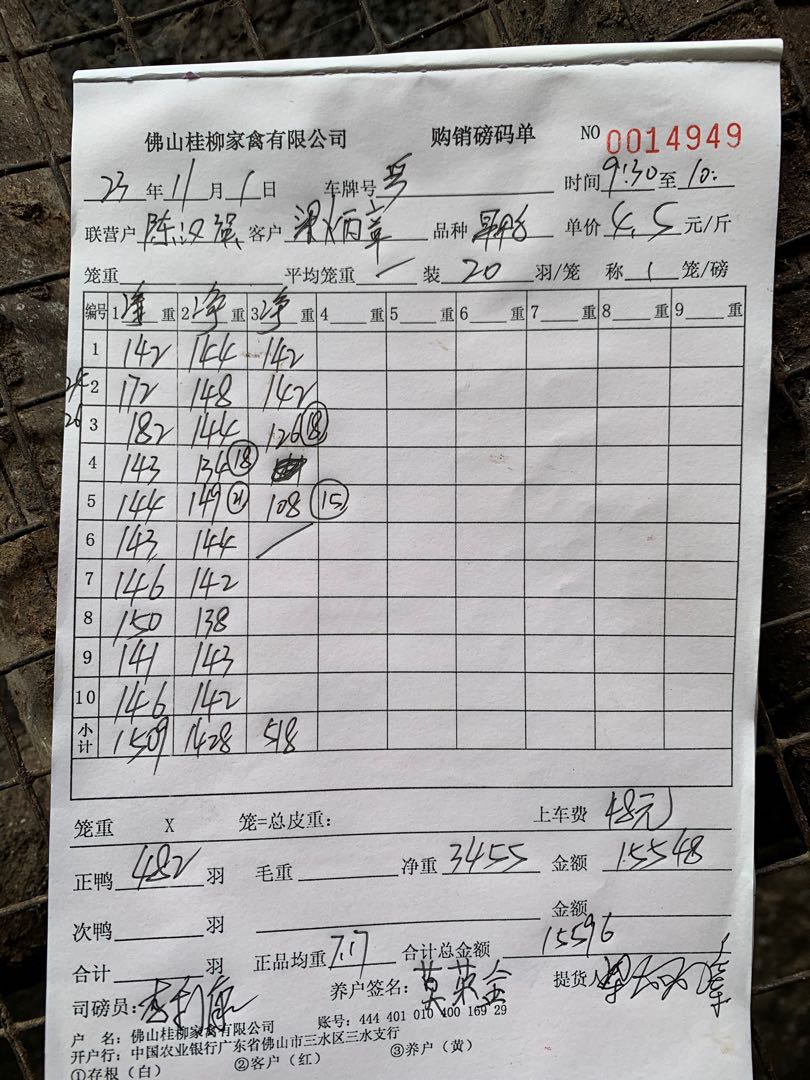 佛山桂柳家禽有限公司 购销磅码单 NO 0014949
23 年 11 月 1 日 车牌号 时间 9:30 至 10:
联营户 陈汉强 客户 梁炳章 品种 单价 4.5 元/斤
笼重 平均笼重 / 装 20 羽/笼 称 1 笼/磅
编号 1 净 重 2 净 重 3 净 重 4 重 5 重 6 重 7 重 8 重 9 重
1 142 144 142
24 2 172 148 142
26 3 182 144 126 (18)
4 143 134 (18)
5 144 149 (21) 108 (15)
6 143 144 /
7 146 142
8 150 138
9 141 143
10 146 142
小计 1509 1428 518
笼重 X 笼=总皮重: 上车费 48元
正鸭 482 羽 毛重 净重 3455 金额 15548
次鸭 羽 金额
合计 羽 正品均重 7.17 合计总金额 15596
司磅员: 养户签名: 莫荣金 提货人
户 名: 佛山桂柳家禽有限公司 账号: 444 401 010 400 169 29
开户行: 中国农业银行广东省佛山市三水区三水支行
①存根(白) ②客户(红) ③养户(黄)